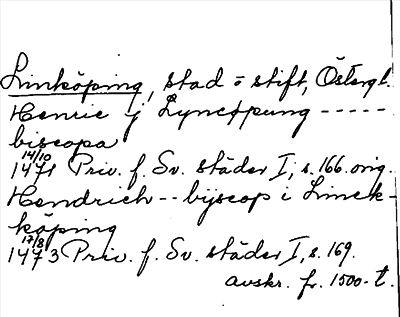 Linköping, stad o stift, Östergl.
Henric j Lyncøpung -----
biscopa
14/10
1471 Priv. f. Sv. städer I, s. 166. orig.
Hendrich -- bijscop i Linck-
köping
17/8
1473 Priv. f. Sv. städer I, s. 169.
avskr. fr. 1500-t.